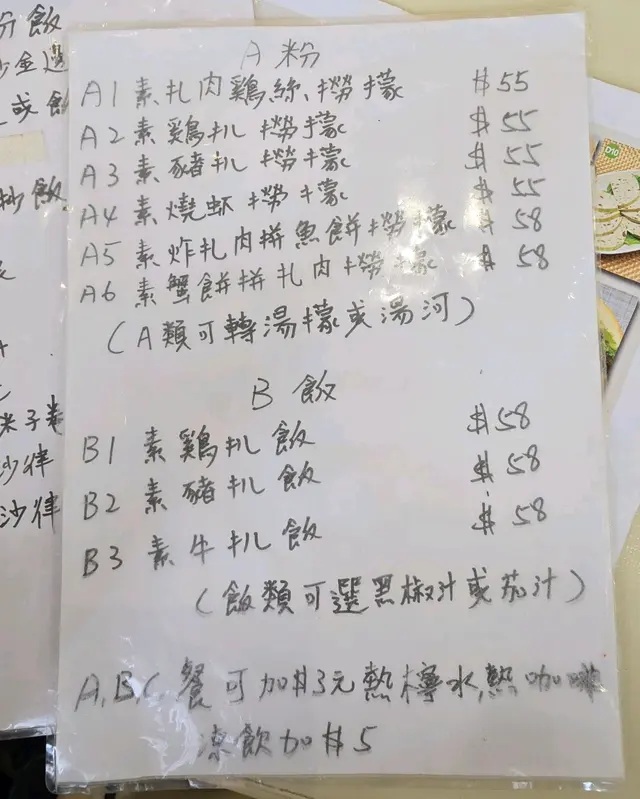 份飯
或飯
炒飯
米子卷
沙律
沙律
A 粉
A1 素扎肉鷄絲撈檬 $55
A2 素鷄扒撈檬 $55
A3 素豬扒撈檬 $55
A4 素燒虾撈檬 $55
A5 素炸扎肉拼魚餅撈檬 $58
A6 素蟹餅拼扎肉撈檬 $58
(A類可轉湯檬或湯河)
B 飯
B1 素鷄扒飯 $58
B2 素豬扒飯 $58
B3 素牛扒飯 $58
(飯類可選黑椒汁或茄汁)
A,B,C,餐可加$3元熱檸水,熱咖啡
凍飲加$5